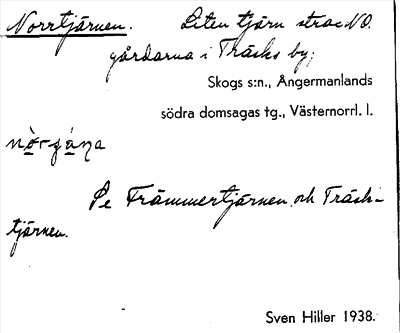 Norrtjärnen. Liten tjärn strax NO.
gårdarna i Träsks by;
Skogs s:n., Ångermanlands
södra domsagas tg., Västernorrl. l.
Se Främmertjärnen och Träsk-
tjärnen.
Sven Hiller 1938.